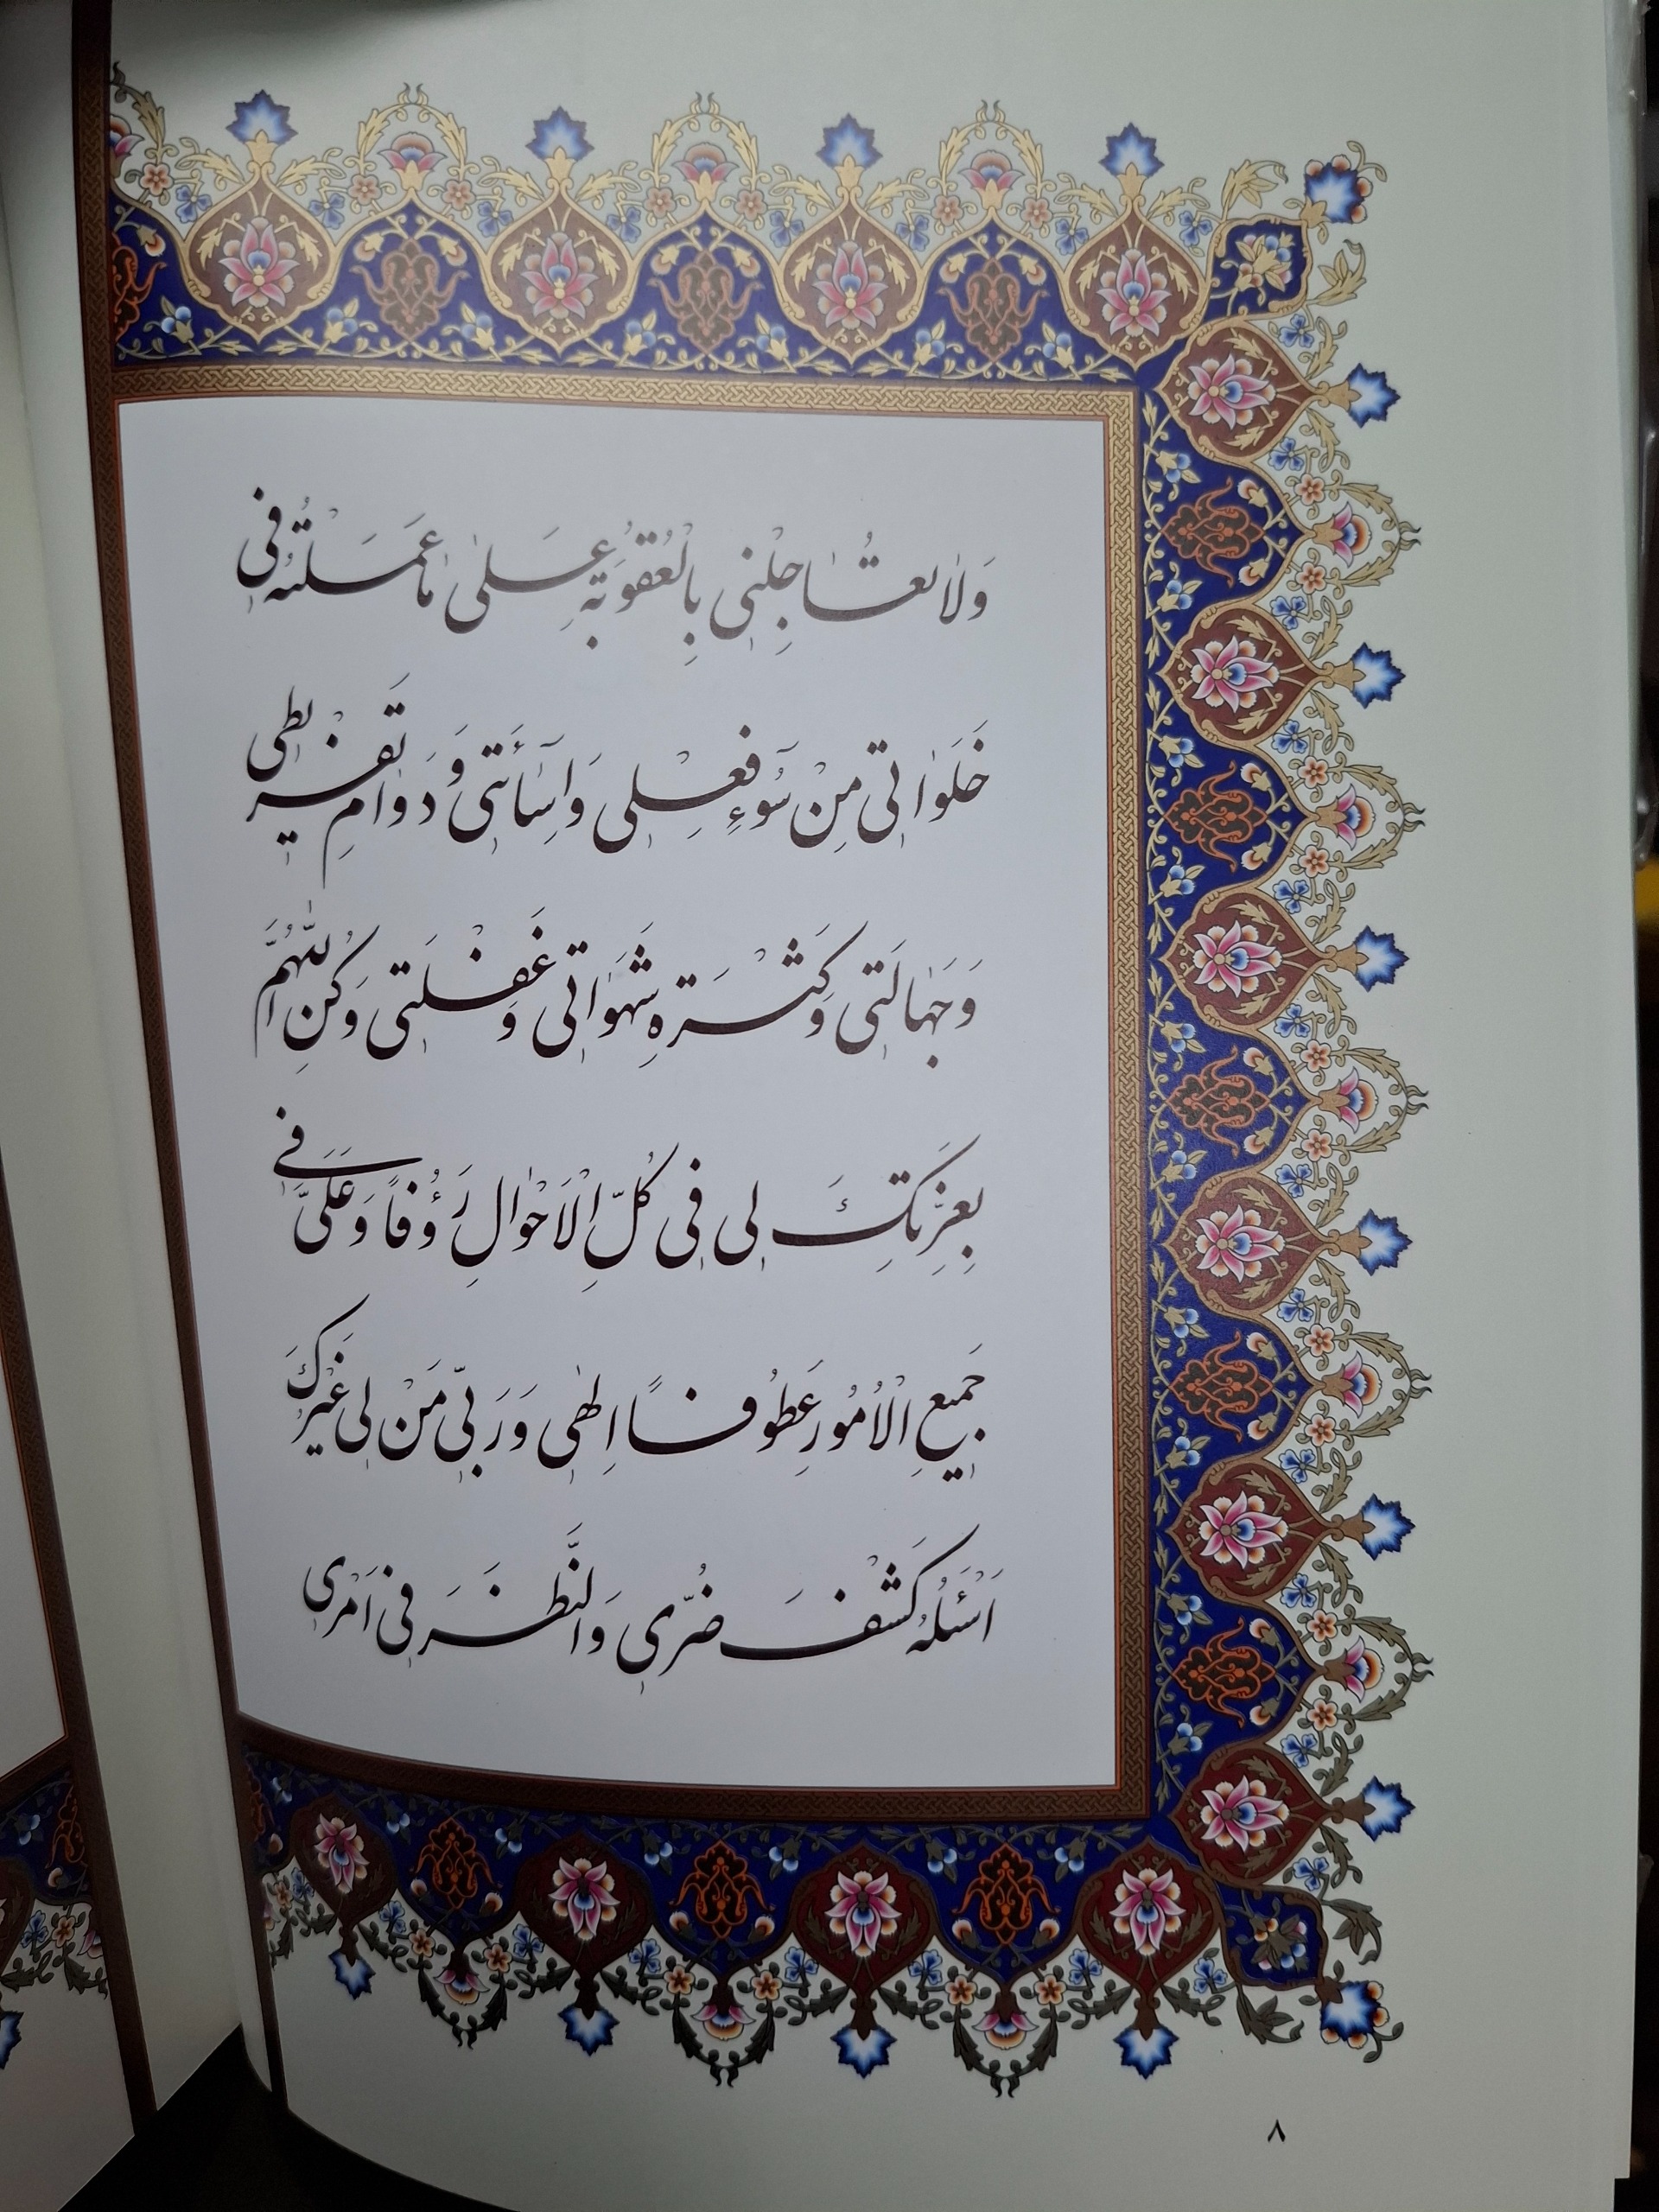 وَلاٰ تُعٰاجِلْنٖی بِالْعُقُوبَةِ عَلیٰ مٰا عَمَلْتُهُ فٖی
خَلَوٰاتٖی مِنْ سُوٓءِ فِعْلٖی وَاِسٰٓائَتٖی وَ دَوٰامِ تَفْرٖیطٖی
وَجَهٰالَتٖی وَ كَثْرَةِ شَهَوٰاتٖی وَ غَفْلَتٖی وَ كُنِ اللّٰهُمَّ
بِعِزَّتِكَ لٖی فٖی كُلِّ الْاَحْوٰالِ رَؤُفاً وَ عَلَیَّ فٖی
جَمٖیعِ الْاُمُورِ عَطُوفاً اِلٰهٖی وَ رَبّٖی مَنْ لٖی غَیْرُكَ
اَسْئَلُهُ كَشْفَ ضُرّٖی وَالنَّظَرَ فٖی اَمْرٖی
٨